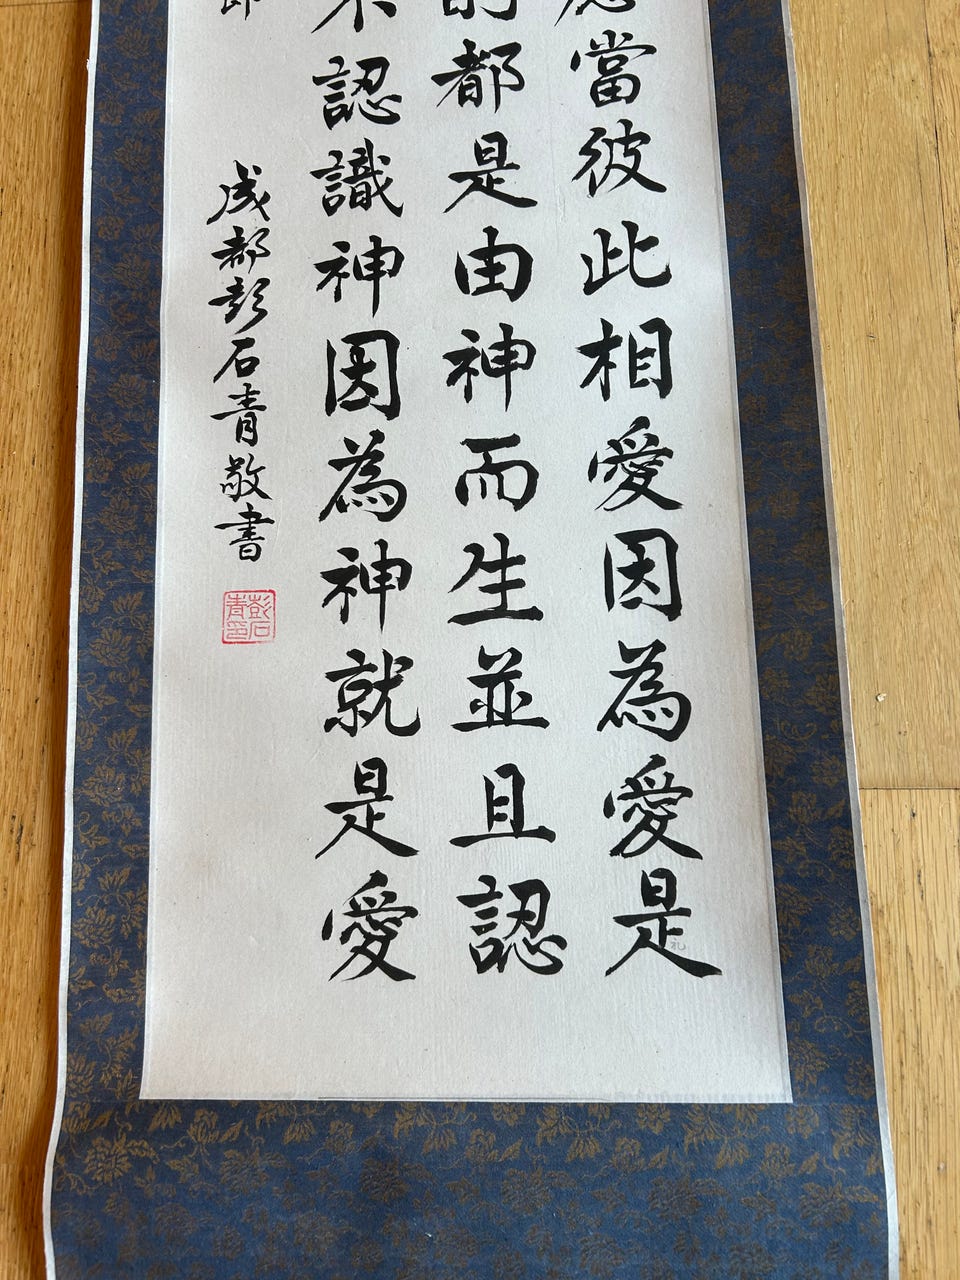 應當彼此相愛因為愛是
的都是由神而生並且認
不認識神因為神就是愛
成都彭石青敬書
彭石
青印